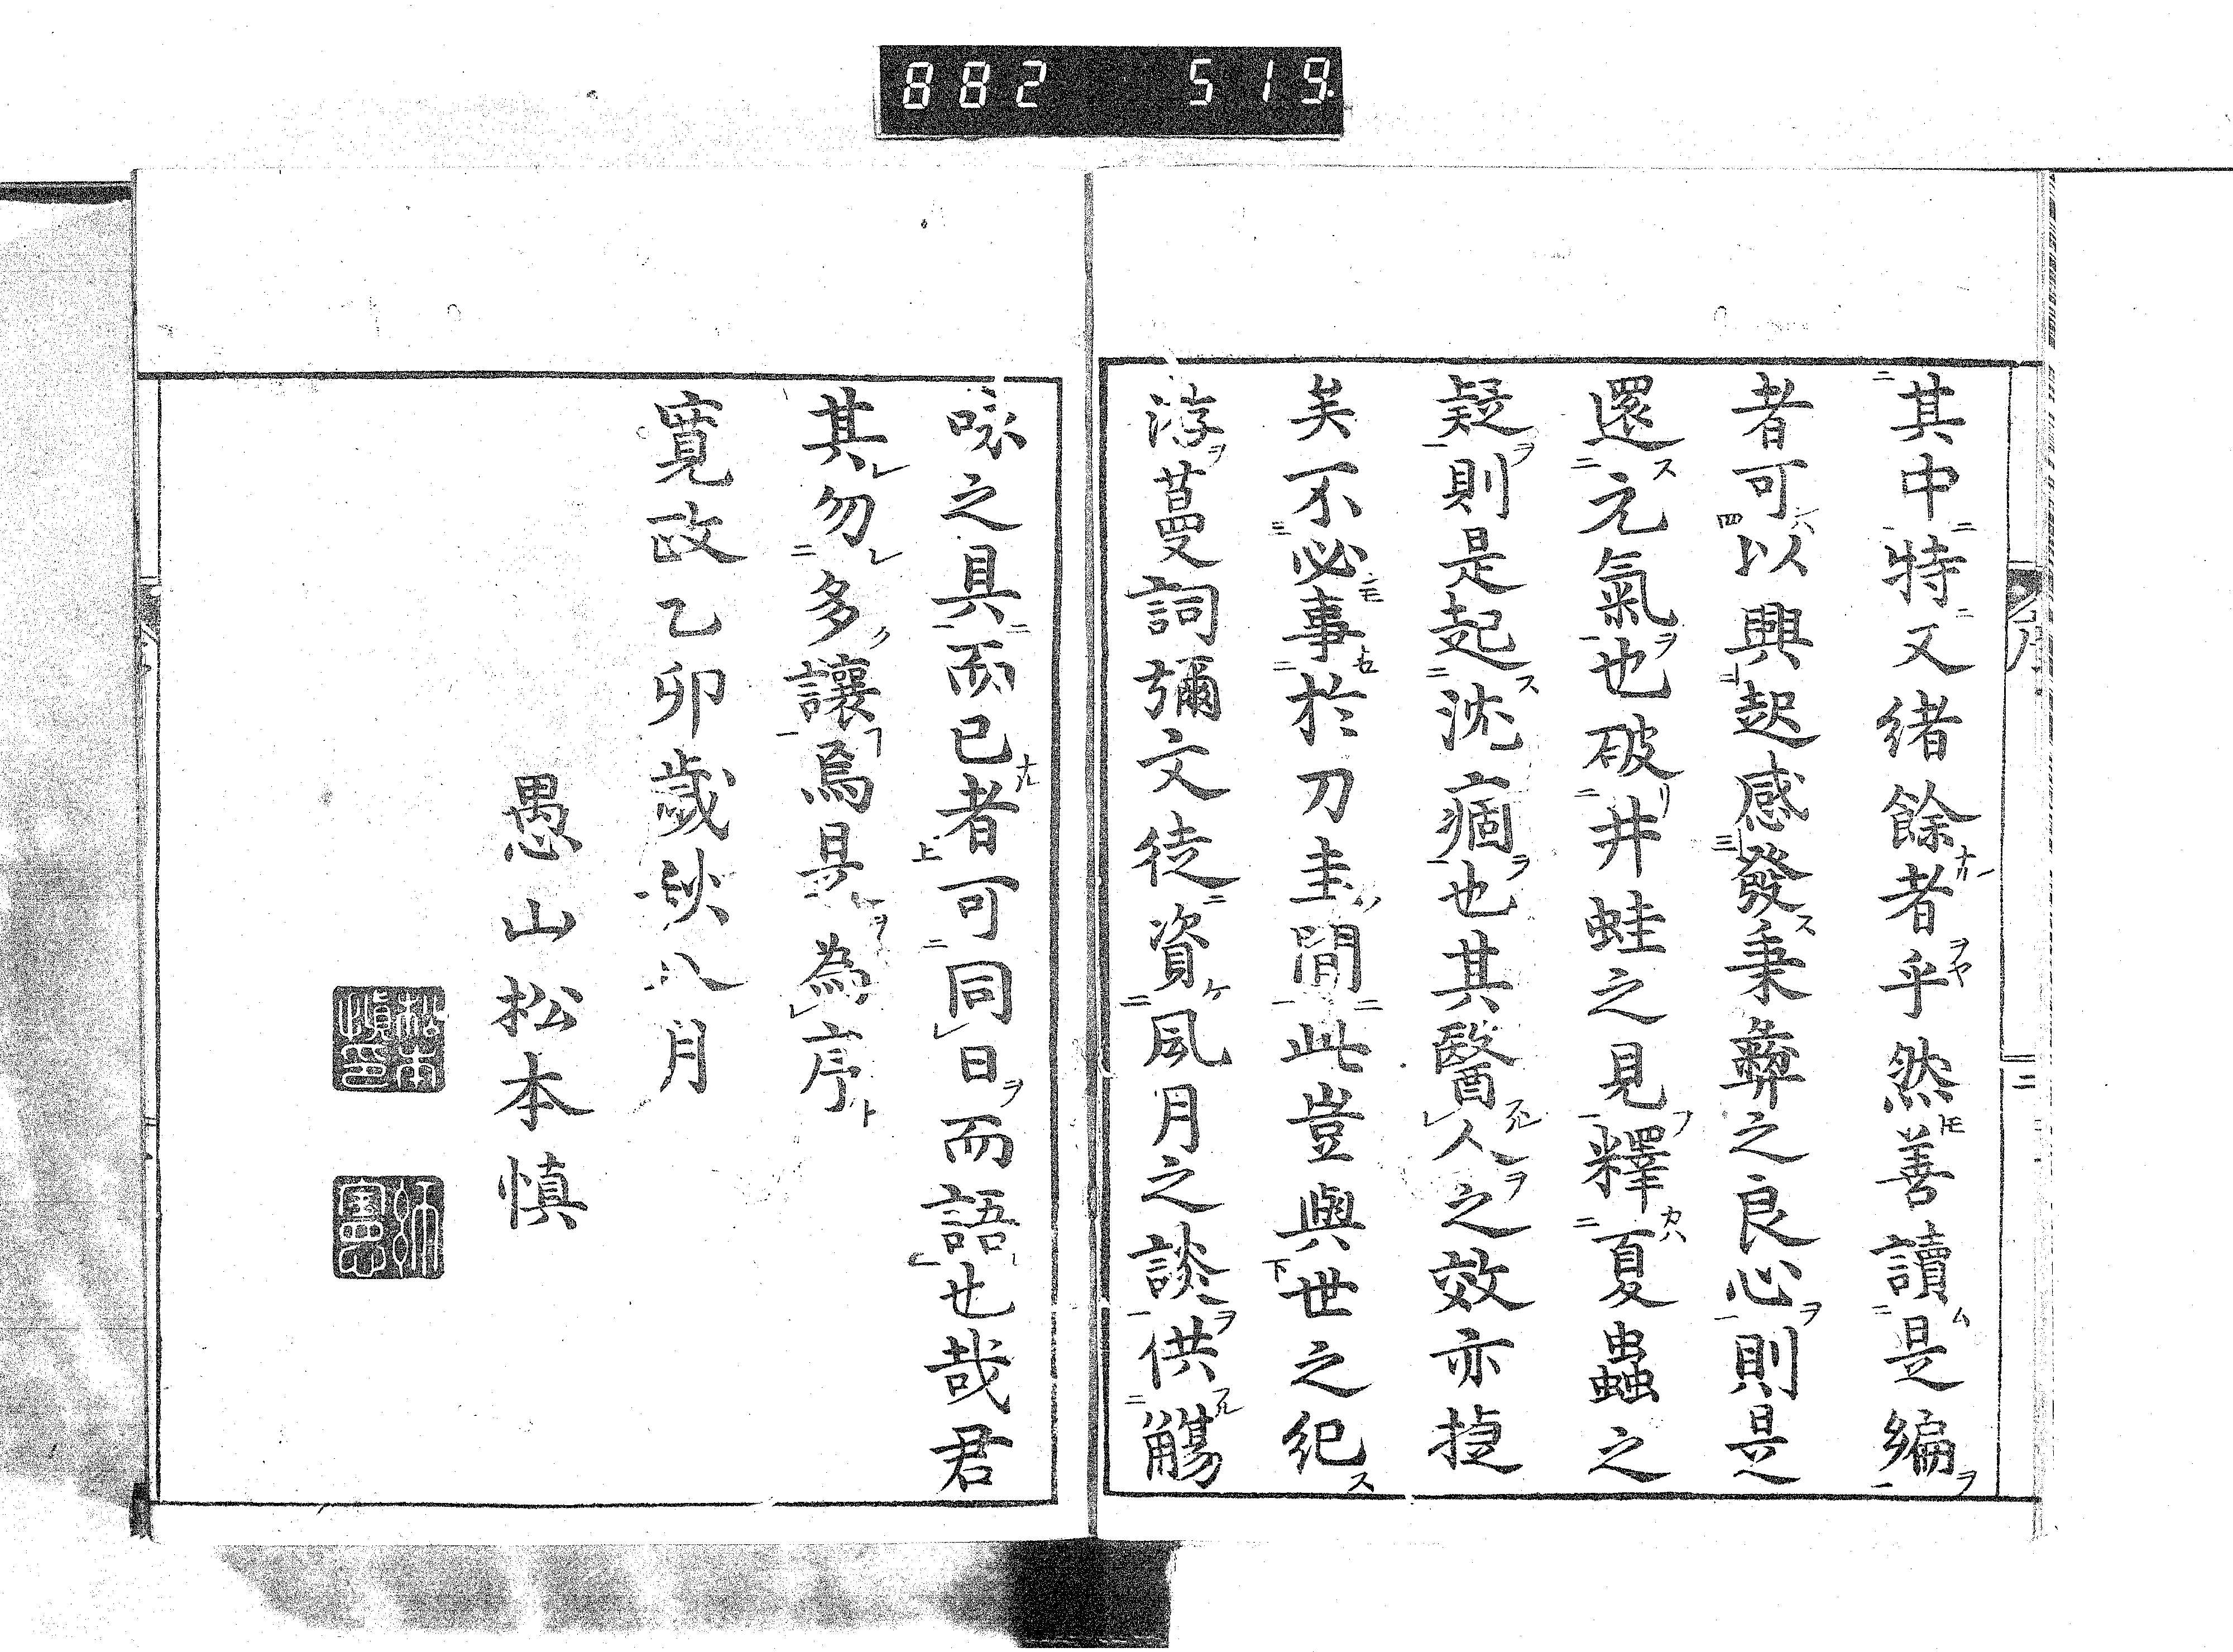 882 519
其中特又緒餘者乎然善讀是編
者可以興起感發秉彝之良心則是
還元氣也破井蛙之見釋夏蟲之
疑則是起沈痼也其醫人之效亦捷
矣不必事於刀圭間此豈與世之紀
浮蔓詞彌文徒資風月之談供觴
咏之具而已者可同日而語也哉君
其勿多讓焉是為序
寬政乙卯歲秋八月
愚山松本慎
松本慎印